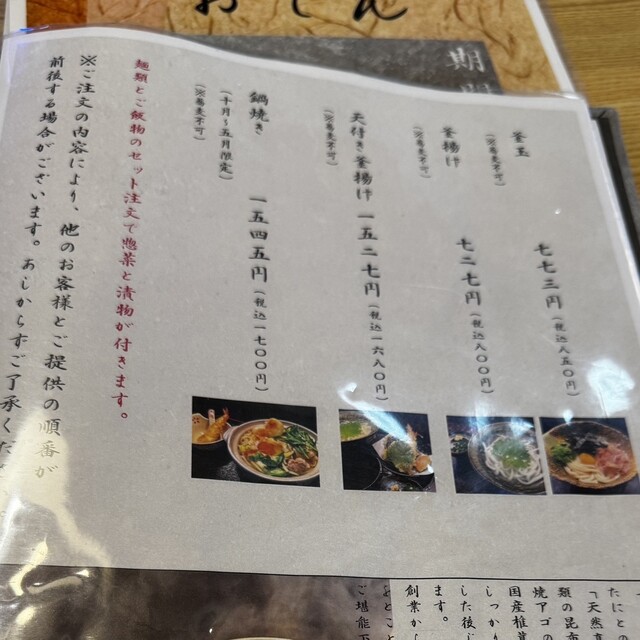 おでん
期
釜玉
(※蕎麦不可)
七七三円(税込八五〇円)
釜揚げ
(※蕎麦不可)
七二七円(税込八〇〇円)
天付き釜揚げ 一五二七円(税込一六八〇円)
(※蕎麦不可)
鍋焼き 一五四五円(税込一七〇〇円)
(十月~五月限定)
(※蕎麦不可)
麺類とご飯物のセット注文で惣菜と漬物が付きます。
※ご注文の内容により、他のお客様とご提供の順番が
前後する場合がございます。あしからずご了承くだ
たにと
「天然
類の昆布
焼アゴ
国産椎茸
しっかり
した後じ
ます。
創業から
ご堪能下